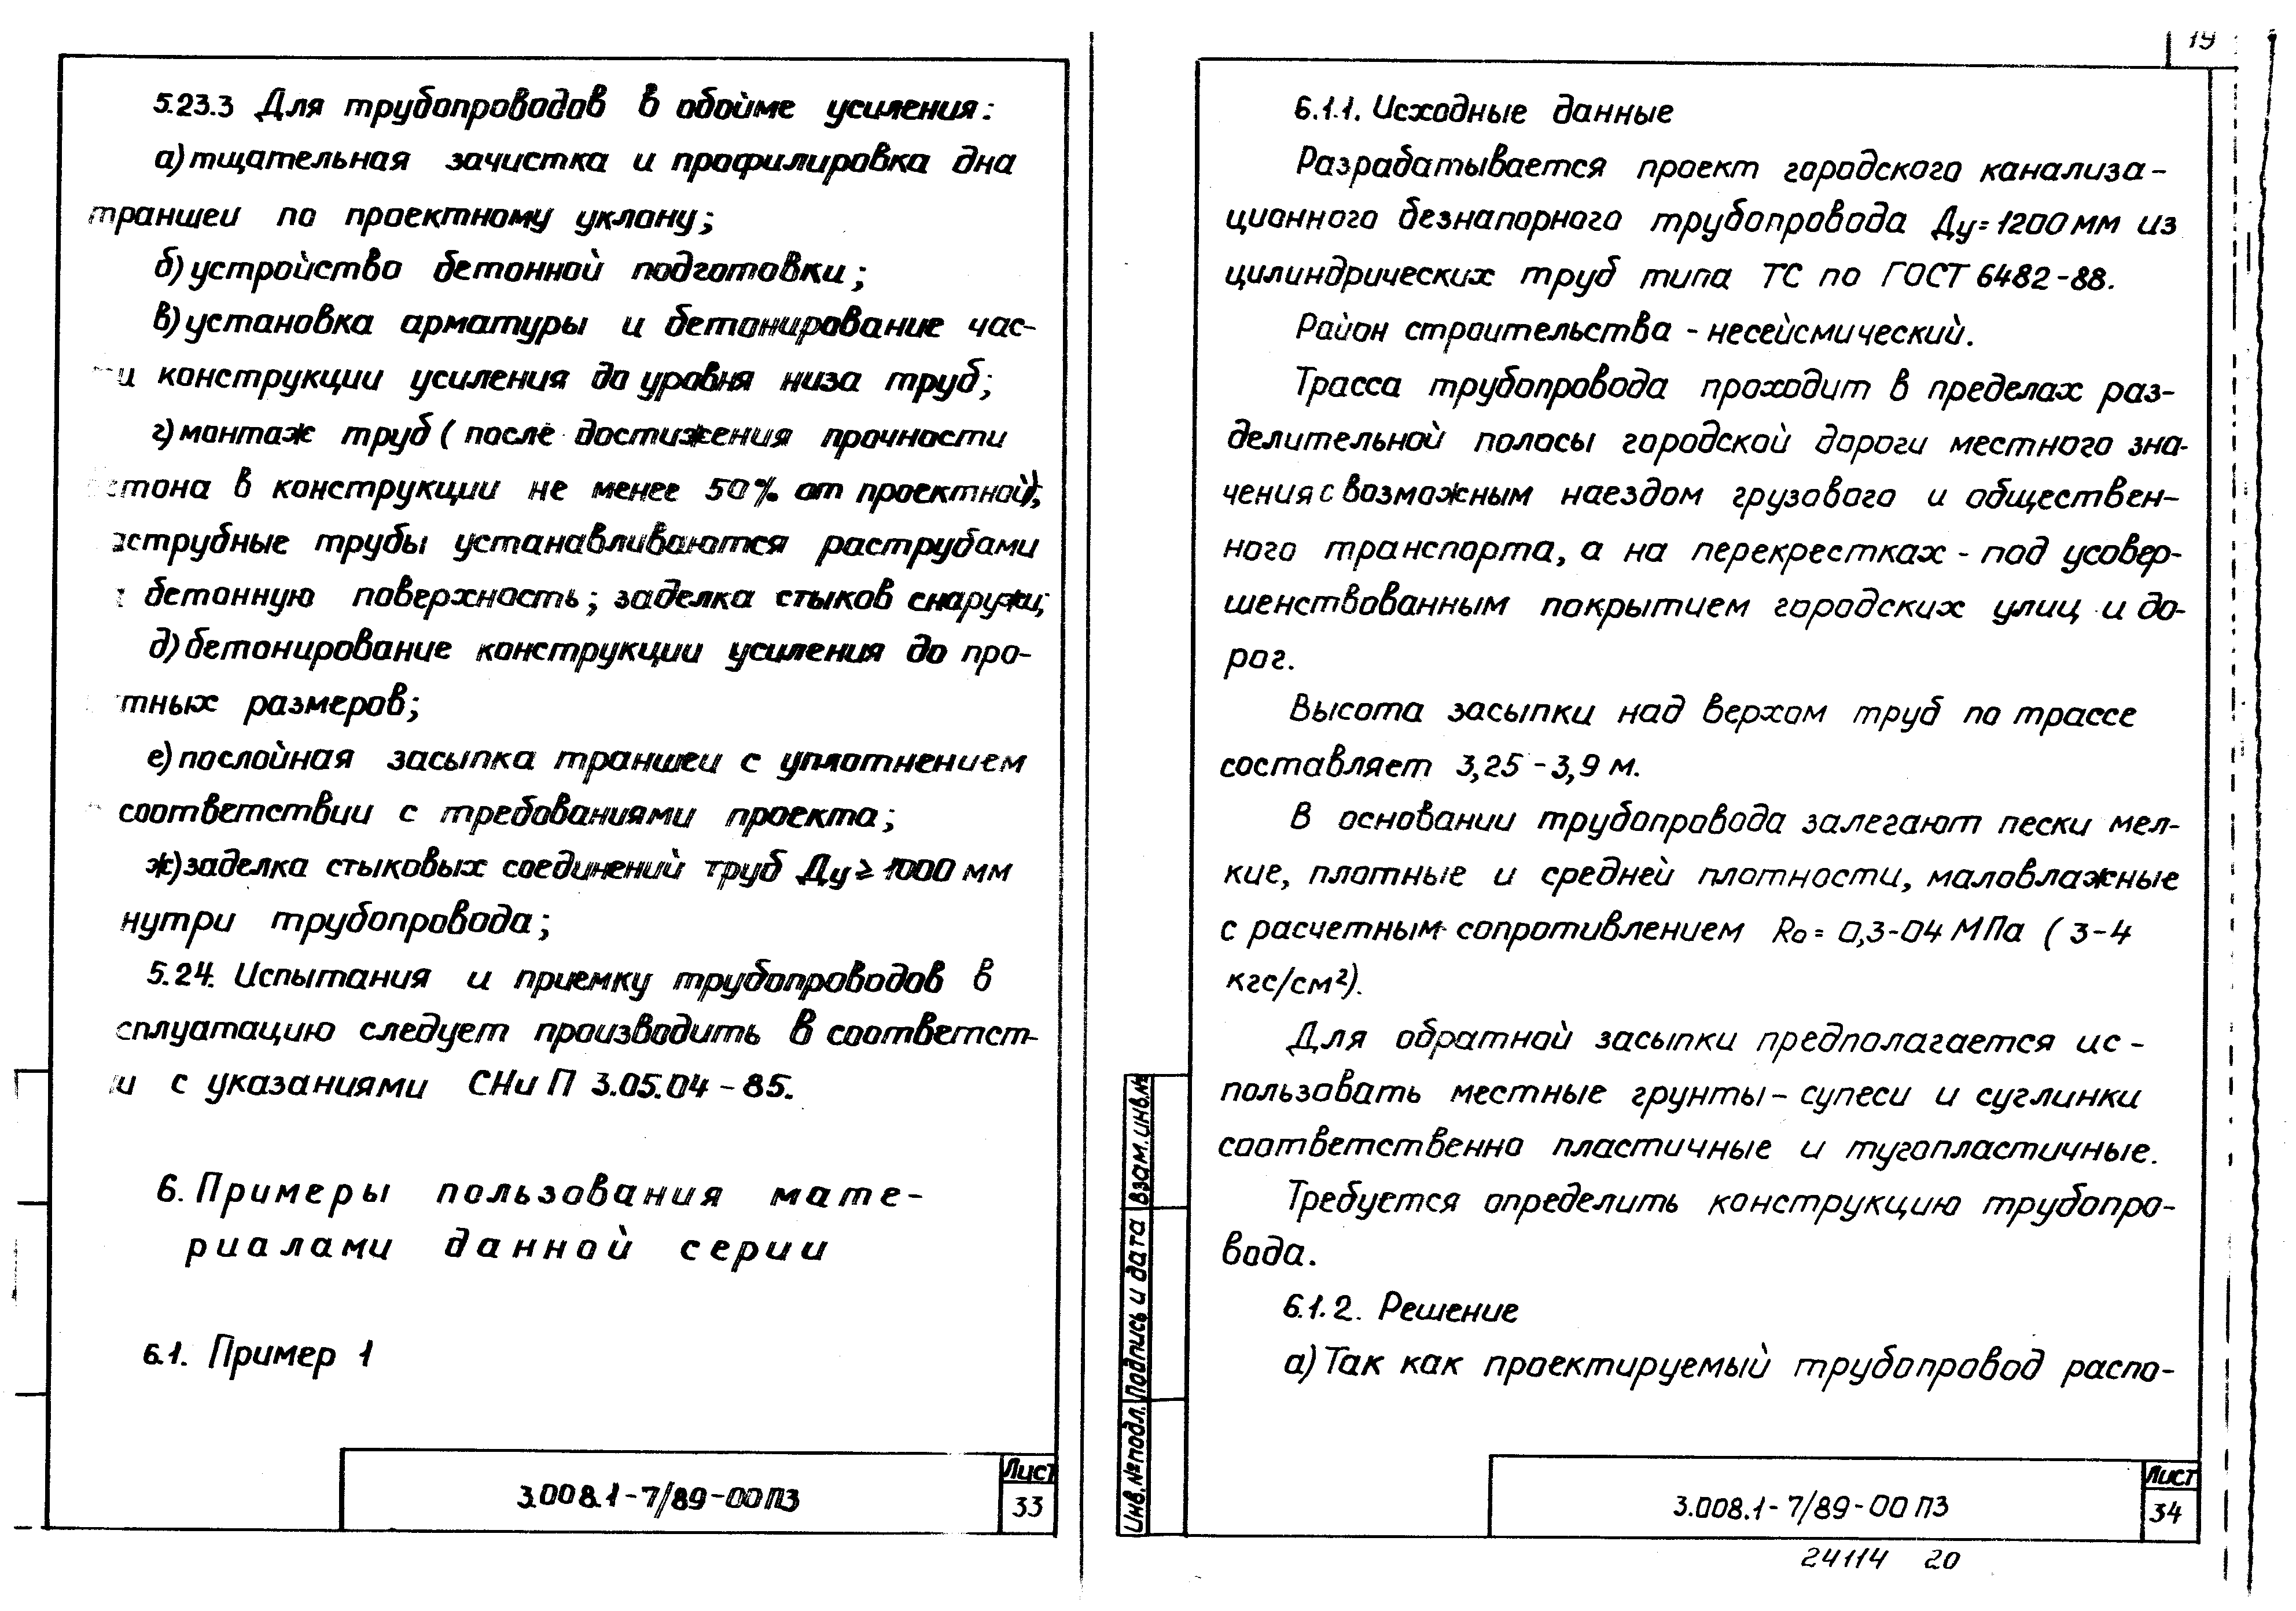 5.23.3 Для трубопроводов в обойме усиления:
а) тщательная зачистка и профилировка дна
траншеи по проектному уклону;
б) устройство бетонной подготовки;
в) установка арматуры и бетонирование час-
и конструкции усиления до уровня низа труб;
г) монтаж труб (после достижения прочности
етона в конструкции не менее 50% от проектной);
аструбные трубы устанавливаются раструбами
бетонную поверхность; заделка стыков снаружи;
д) бетонирование конструкции усиления до про-
тных размеров;
е) послойная засыпка траншеи с уплотнением
соответствии с требованиями проекта;
ж) заделка стыковых соединений труб Ду ≥ 1000 мм
нутри трубопровода;
5.24. Испытания и приемку трубопроводов в
сплуатацию следует производить в соответст-
и с указаниями СНиП 3.05.04-85.
6. Примеры пользования мате-
риалами данной серии
6.1. Пример 1
3.008.1-7/89-00ПЗ
Лист
33
19
6.1.1. Исходные данные
Разрабатывается проект городского канализа-
ционного безнапорного трубопровода Ду=1200мм из
цилиндрических труб типа ТС по ГОСТ 6482-88.
Район строительства - несейсмический.
Трасса трубопровода проходит в пределах раз-
делительной полосы городской дороги местного зна-
чения с возможным наездом грузового и обществен-
ного транспорта, а на перекрестках - под усовер-
шенствованным покрытием городских улиц и до-
рог.
Высота засыпки над верхом труб по трассе
составляет 3,25-3,9 м.
В основании трубопровода залегают пески мел-
кие, плотные и средней плотности, маловлажные
с расчетным сопротивлением Ro = 0,3-04 МПа (3-4
кгс/см²).
Для обратной засыпки предполагается ис-
пользовать местные грунты - супеси и суглинки
соответственно пластичные и тугопластичные.
Требуется определить конструкцию трубопро-
вода.
6.1.2. Решение
а) Так как проектируемый трубопровод распо-
Инв.№подл. Подпись и дата Взам.инв.№
3.008.1-7/89-00ПЗ
Лист
34
24114 20